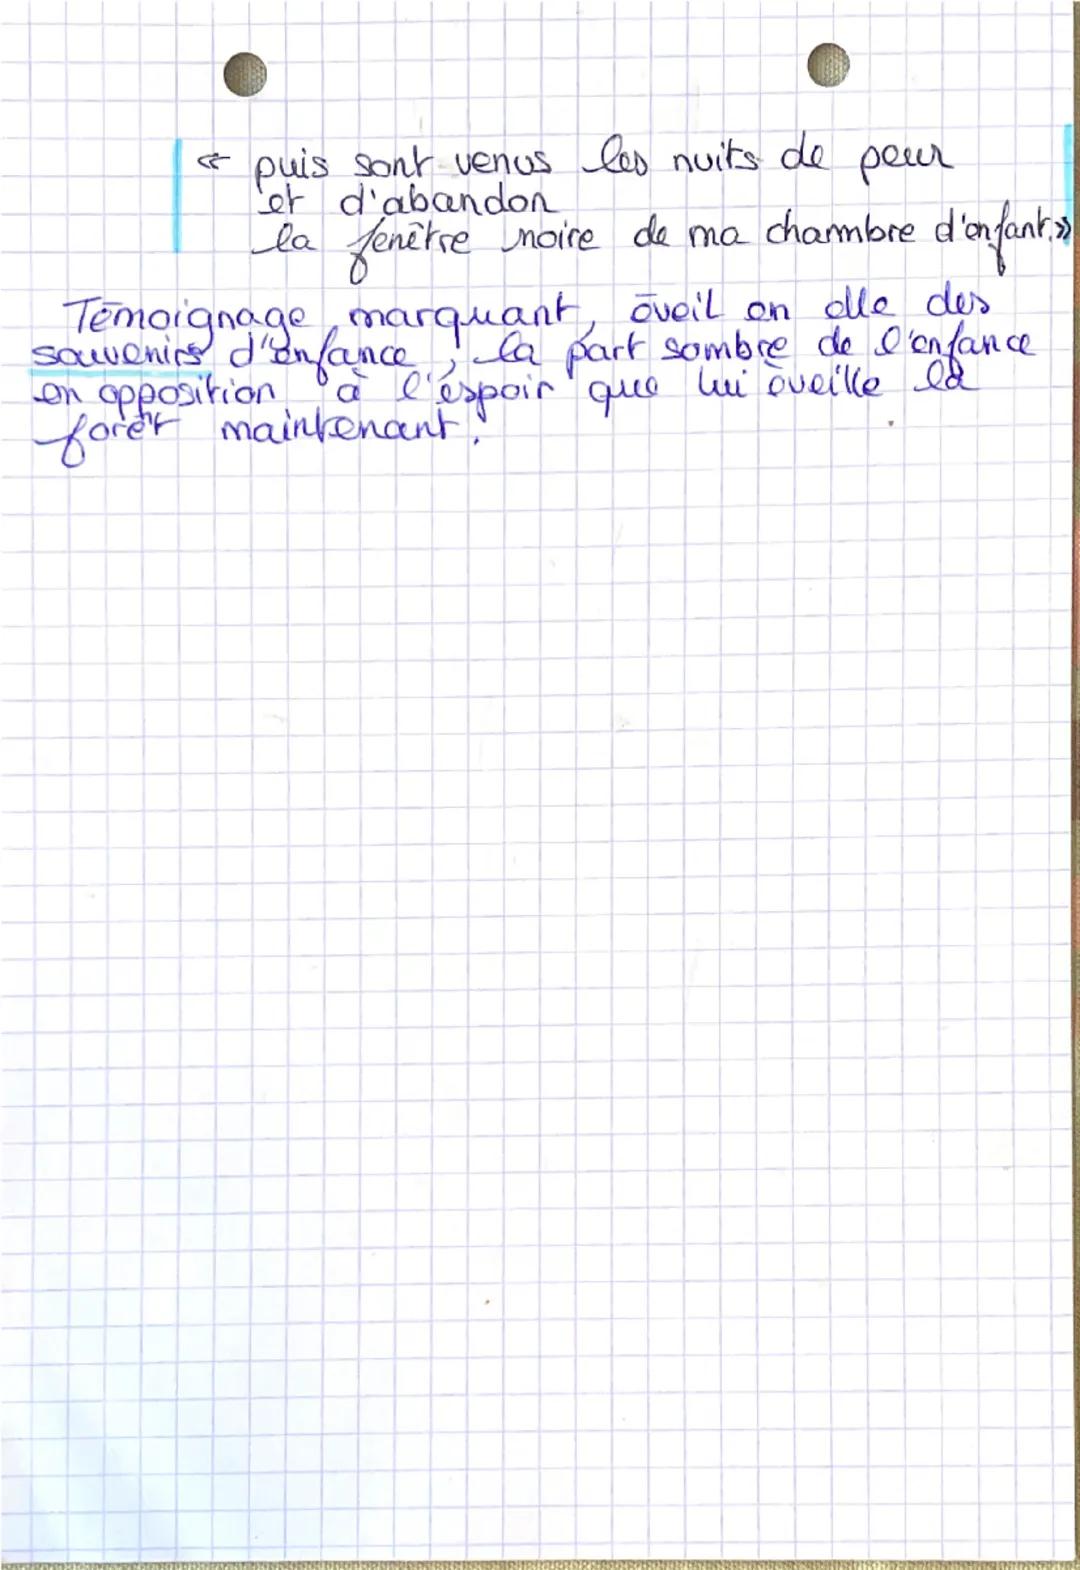 « puis sont venus les nuits de peur
et d'abandon
la fenêtre noire de ma chambre d'enfant. »
Témoignage marquant, éveil en elle des
souvenirs d'enfance, la part sombre de l'enfance
en opposition à l'espoir que lui éveille la
forêt maintenant.